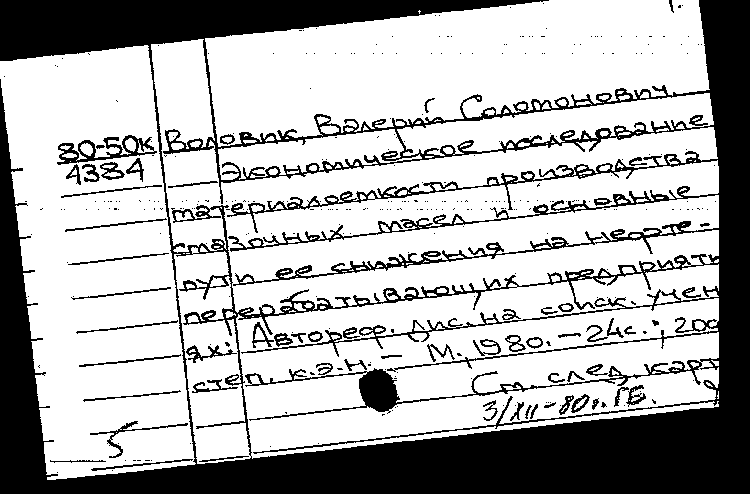 80-50к Воловик, Валерий Соломонович.
4384 Экономическое исследование
материалоемкости производства
смазочных масел и основные
пути ее снижения на нефте-
перерабатывающих предприяти
ях: Автореф. дис. на соиск. учен
степ. к.э.н. – М., 1980. – 24с.; 20с
См. след. карт
3/XII-80г. ГБ.
5